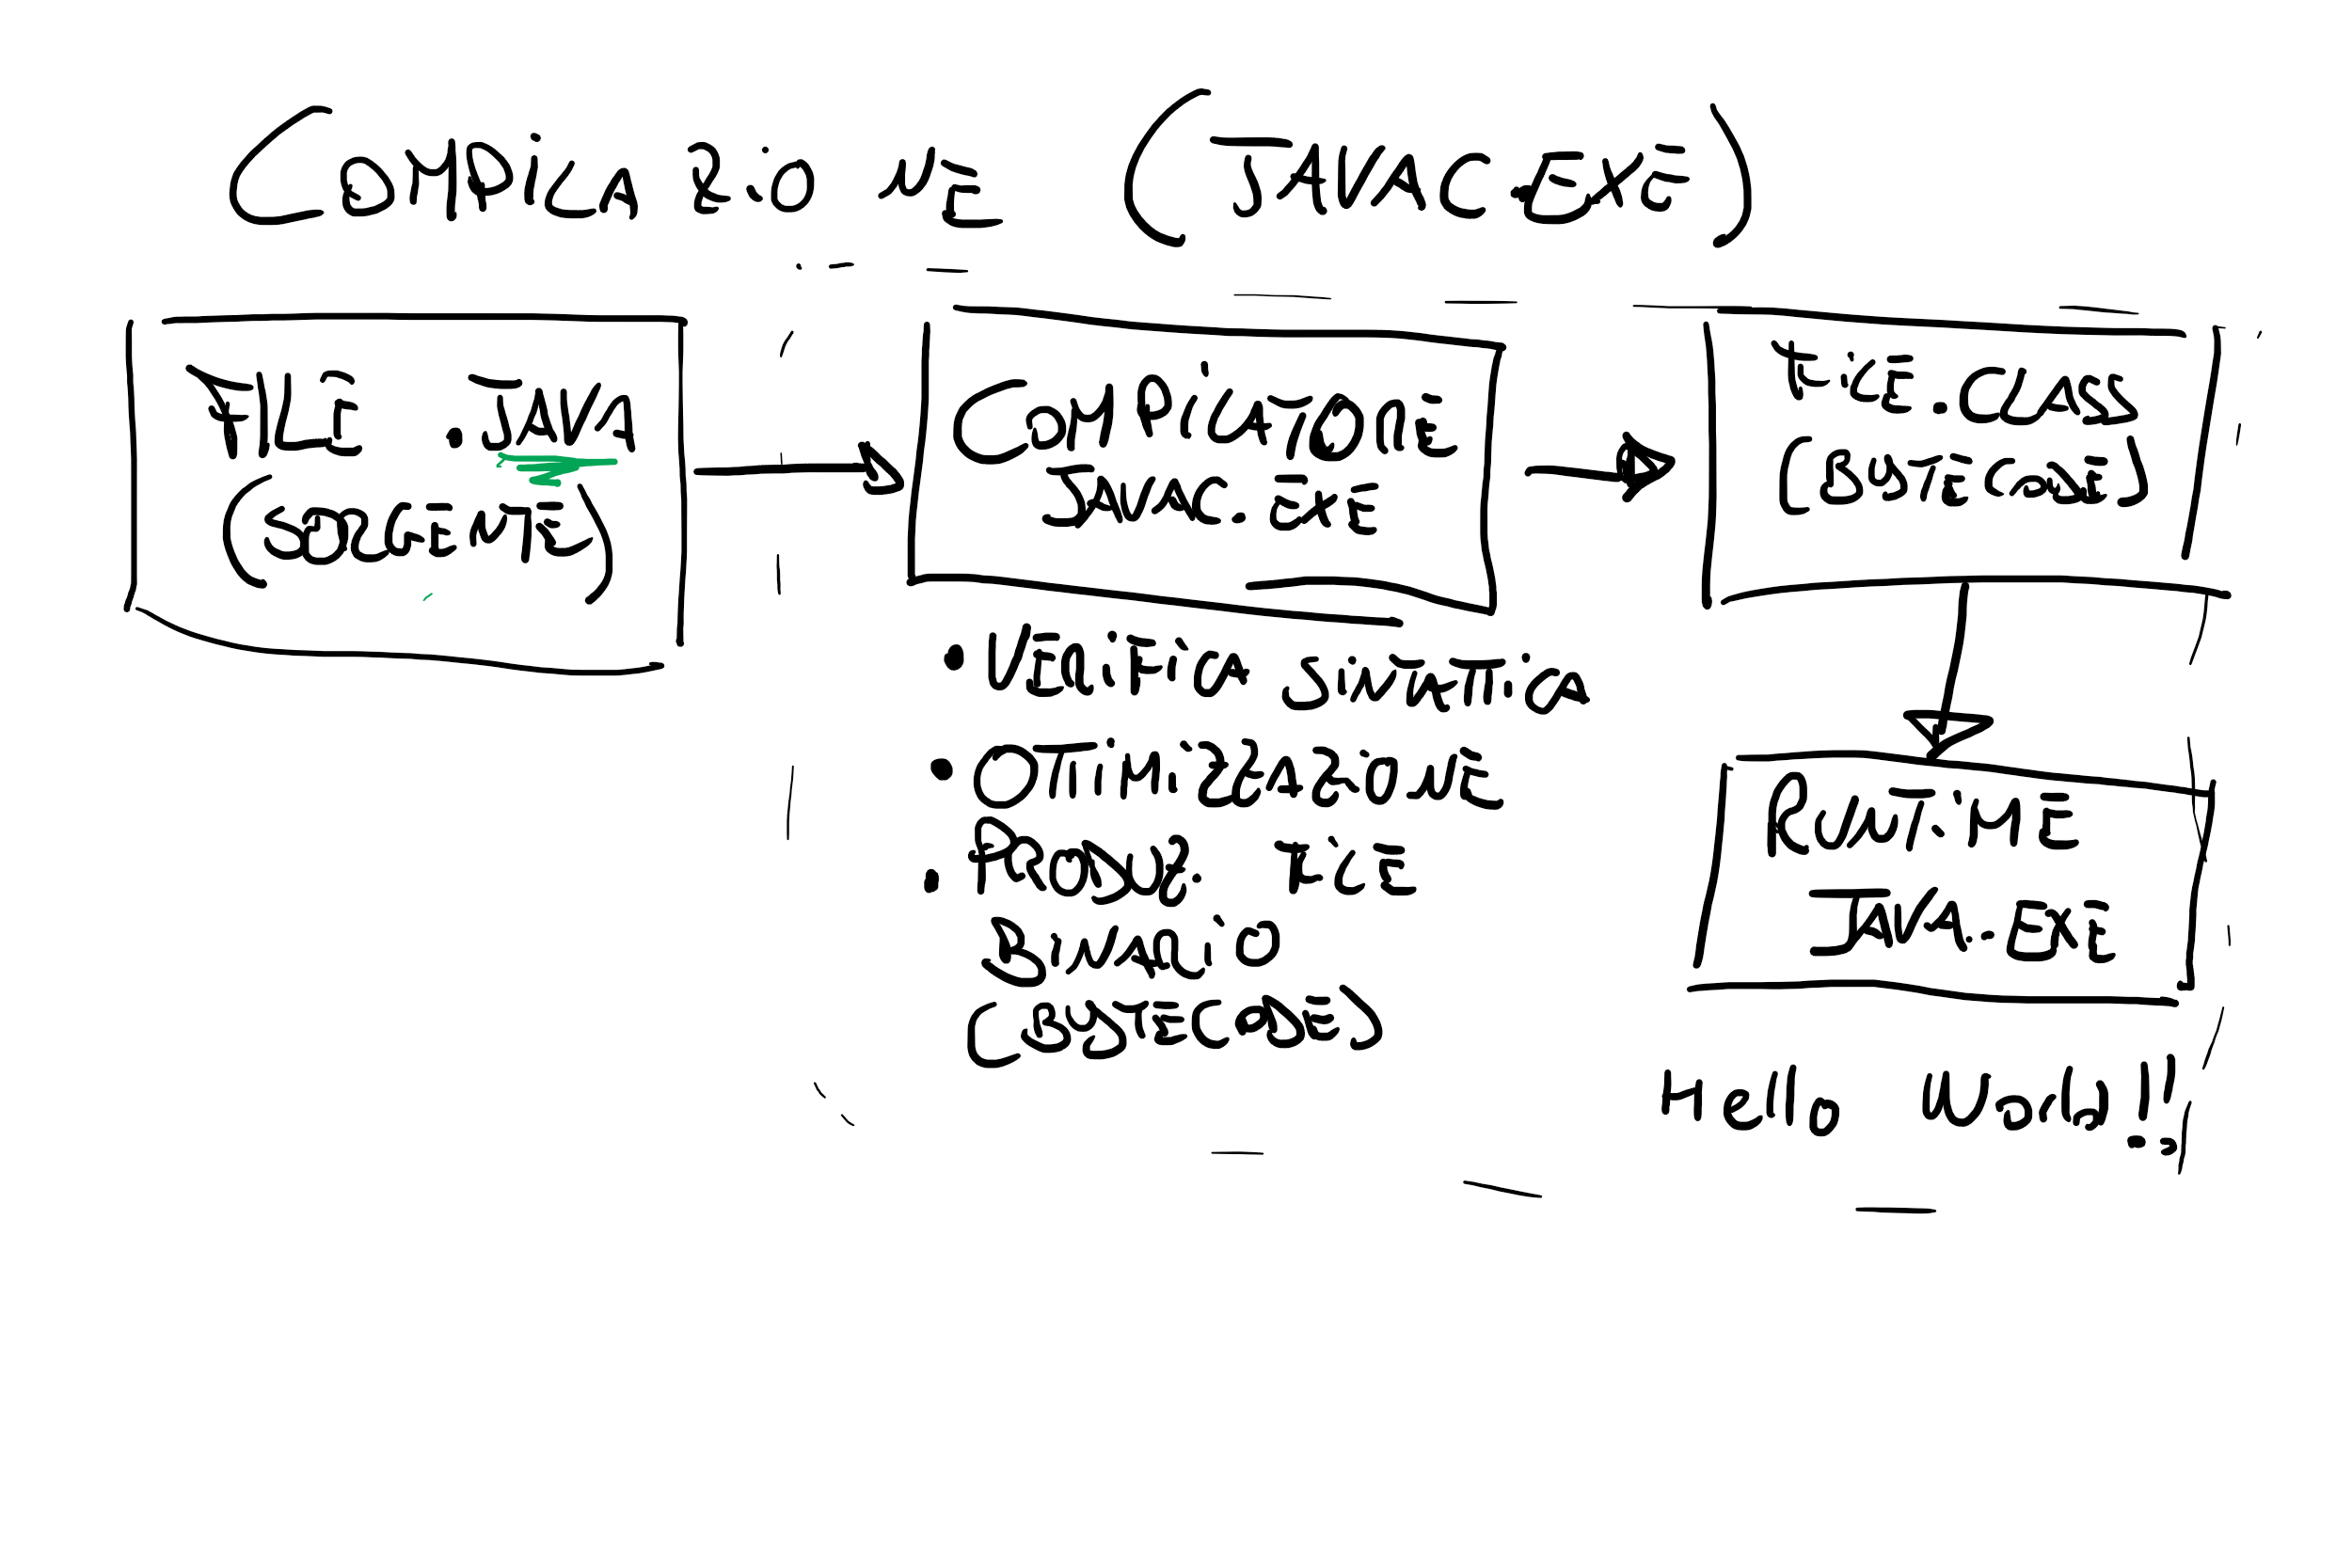 COMPILAZIONE (JAVAC.EXE)
FILE .JAVA
(SORGENTE)
COMPILATORE
JAVAC.EXE
• VERIFICA SINTATTICA
• OTTIMIZZAZIONE
• PRODUZ. FILE
BINARIO
(BYTECODE)
FILE.CLASS
(BYTECODE)
RUNTIME
JAVA.EXE
Hello World!!